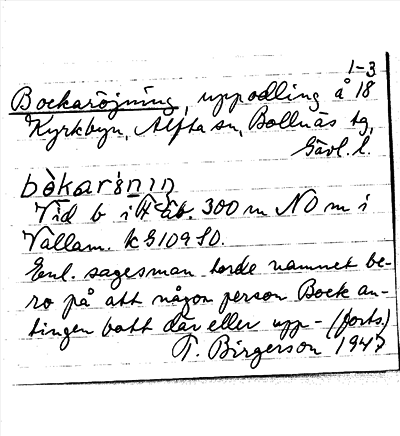 1-3
Bockaröjning, uppodling å 18
Kyrkbyn, Alfta sn, Bollnäs tg,
Gävl. l.
Vid b i 300 m NO m i
Vallam. k G109 SO.
Enl. sagesman torde namnet be-
ro på att någon person Bock an-
tingen bott där eller upp- (forts.)
T. Birgerson 1947